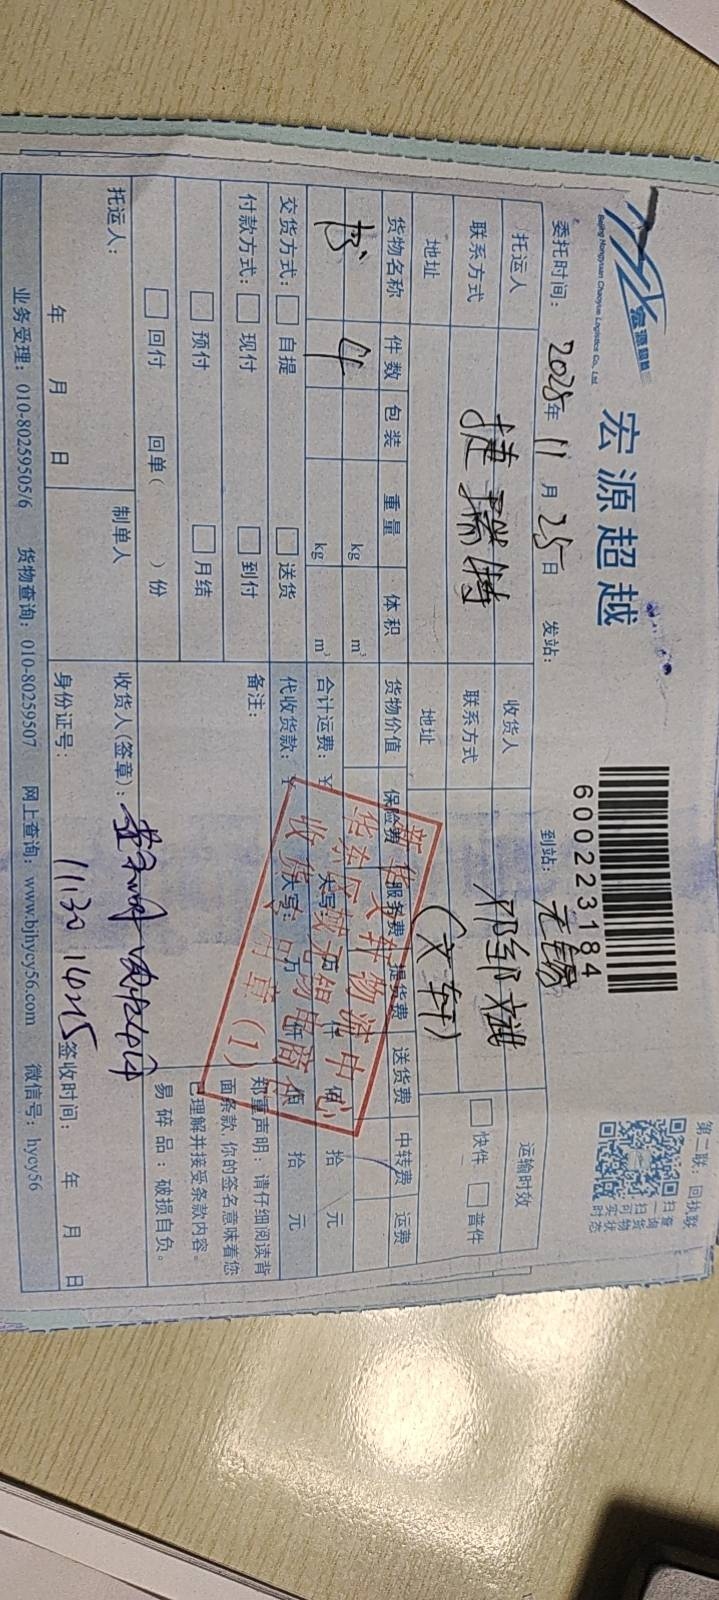 宏源超越
Beijing Hongyuan Chaoyue Logistics Co., Ltd.
宏源超越
600223184
第二联：回执联
扫一扫可实时
查询货物状态
委托时间：2025年11月25日 发站： 到站：无锡
托运人 收货人 运输时效
联系方式 捷瑞特 联系方式 快件 普件
地址 地址 (文轩)
货物名称 件数 包装 重量 体积 货物价值 保险费 服务费 提货费 送货费 中转费 运费
书 4 kg m³
kg m³ 合计运费：￥ 大写： 万 仟 佰 拾 元
交货方式： 自提 送货 代收货款：￥ 大写： 万 仟 佰 拾 元
付款方式： 现付 到付 备注：
预付 月结
回付 回单( )份
郑重声明：请仔细阅读背
面条款，你的签名意味着您
已理解并接受条款内容。
易碎品：破损自负。
新华文轩物流中心
收货专用章(1)
托运人： 制单人 收货人(签章)：
年 月 日 身份证号： 签收时间： 年 月 日
业务受理：010-80259505/6 货物查询：010-80259507 网上查询：www.bjhycy56.com 微信号：hycy56